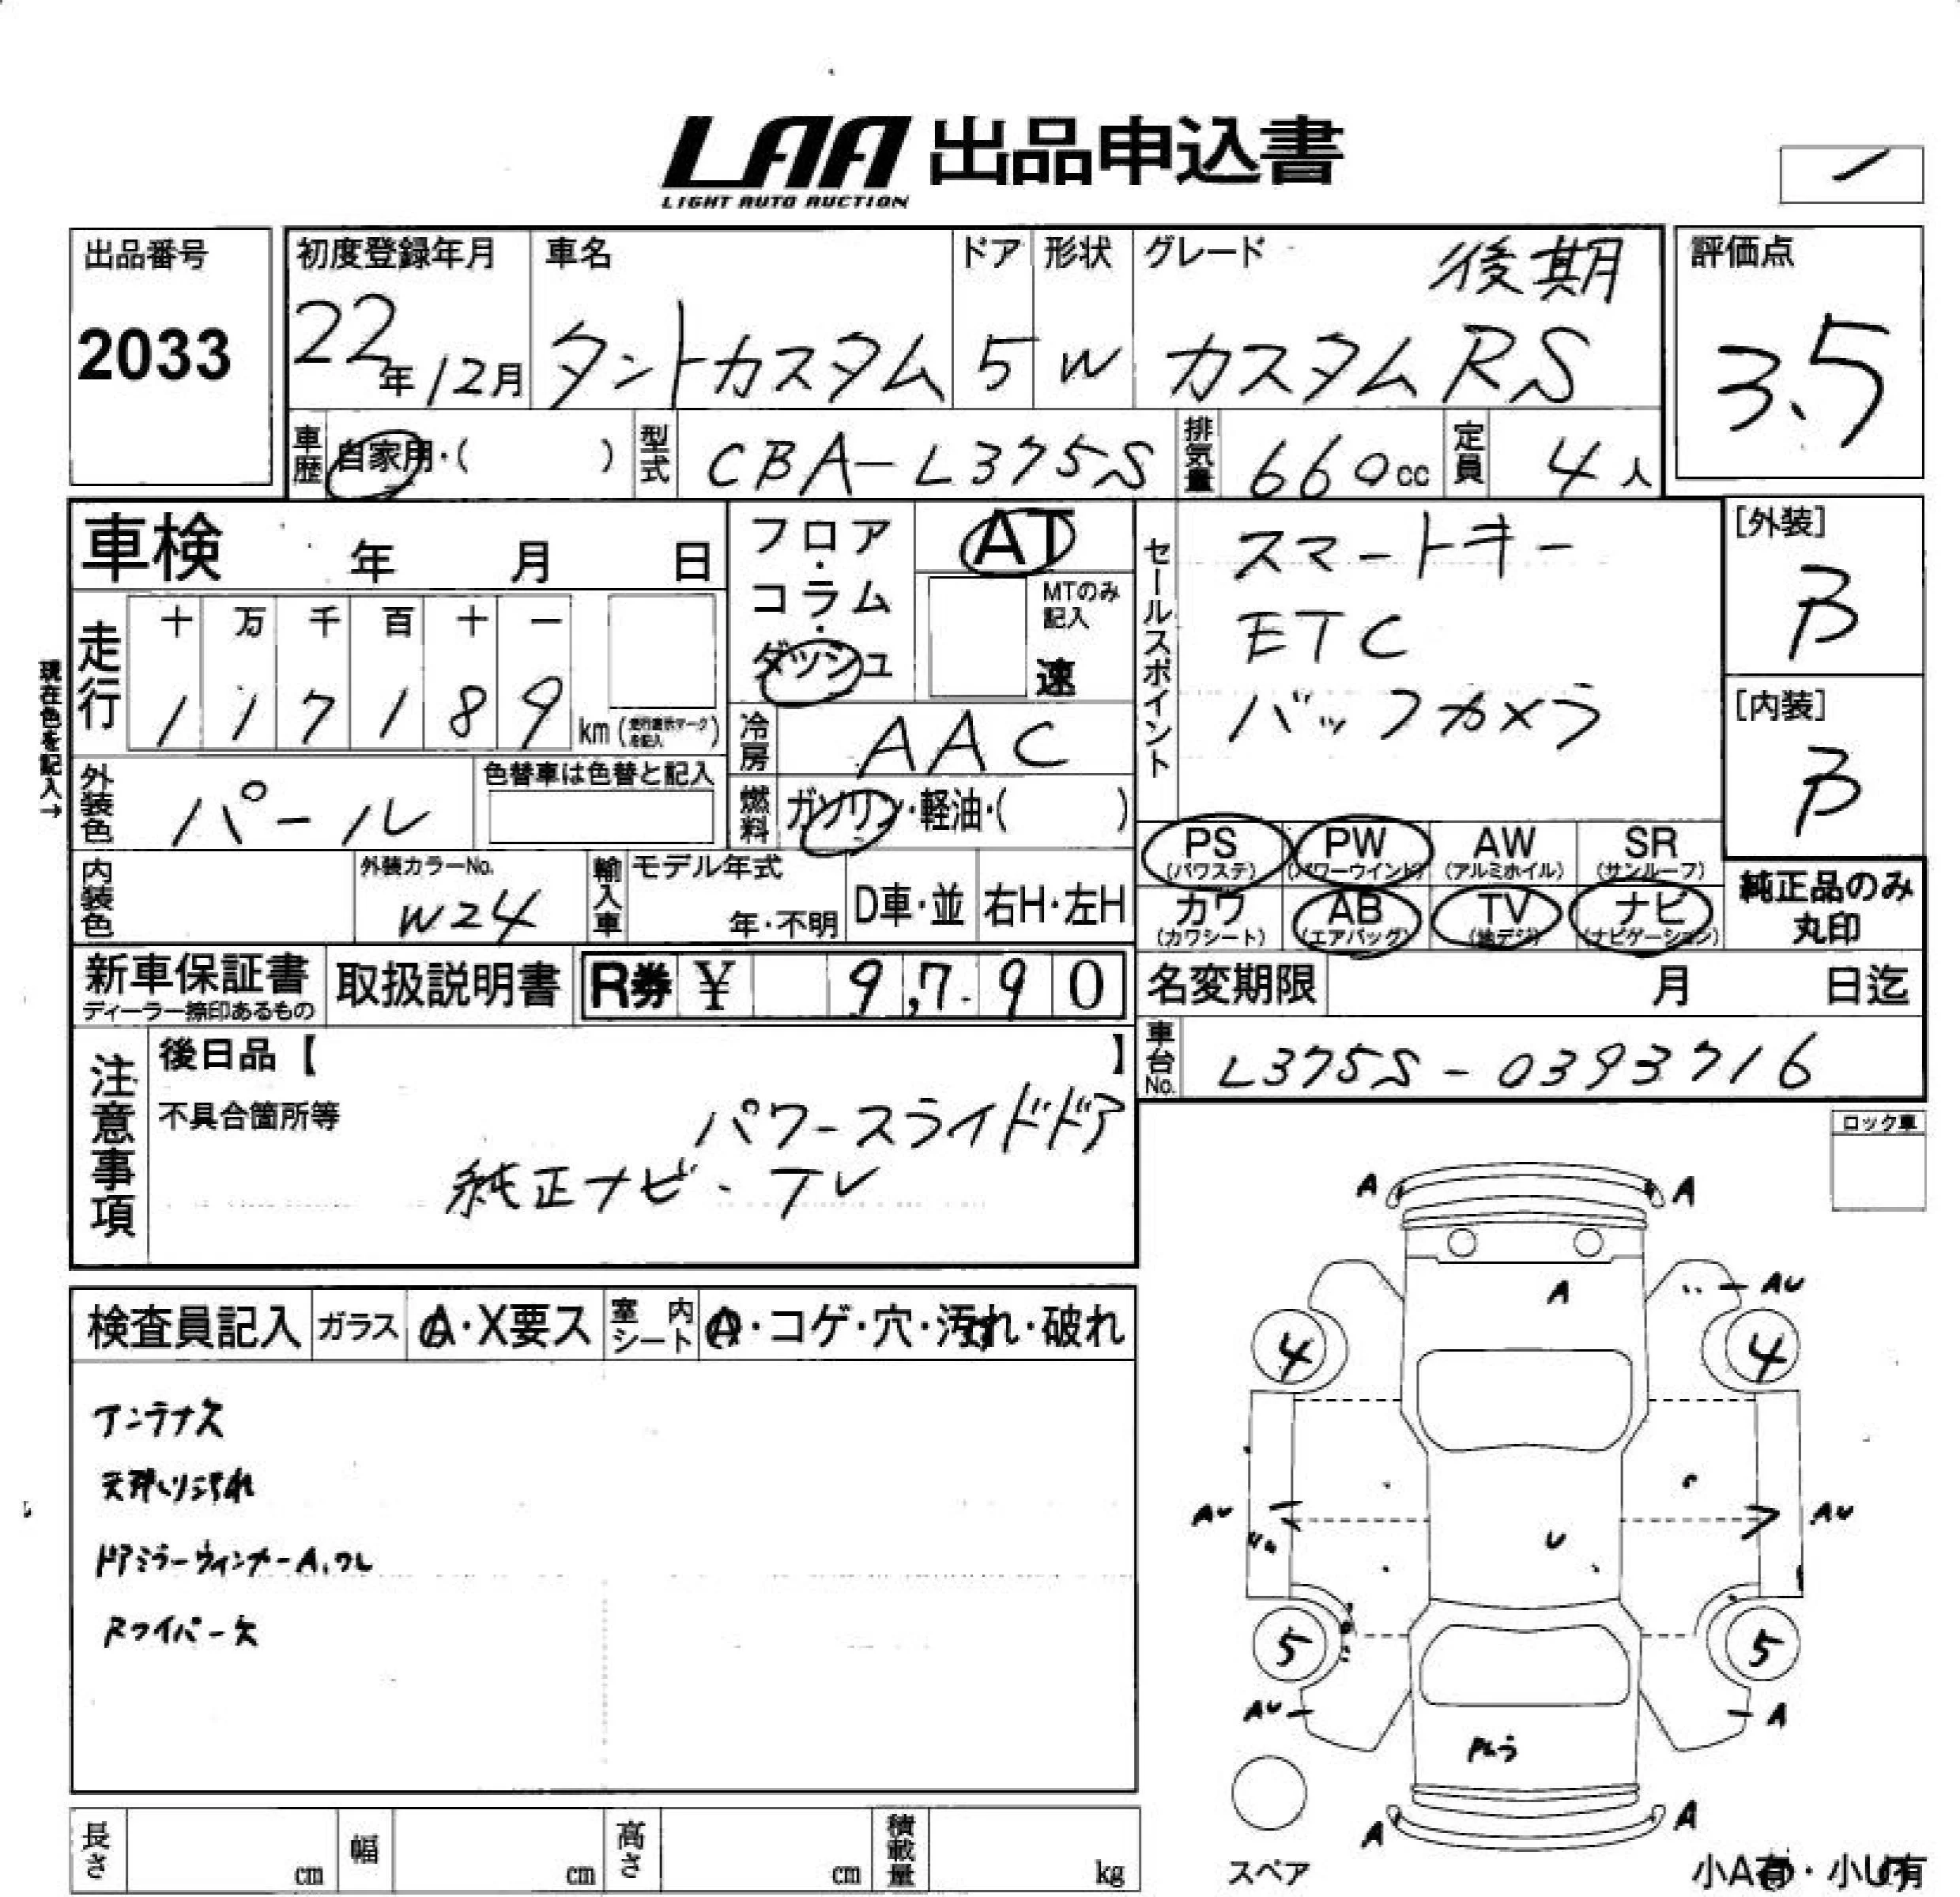 LAA 出品申込書
LIGHT AUTO AUCTION
出品番号
2033
初度登録年月
22年12月
車名
タントカスタム
ドア
5
形状
W
グレード 後期
カスタムRS
評価点
3.5
車歴
自家用・( )
型式
CBA-L375S
排気量
660cc
定員
4人
車検 年 月 日
フロア・コラム・ダッシュ
AT
MTのみ記入
速
セールスポイント
スマートキー
ETC
バックカメラ
[外装]
B
[内装]
B
現在色を記入→
走行
十 万 千 百 十 一
1 1 7 1 8 9 km
冷房
AAC
外装色
パール
色替車は色替と記入
燃料
ガソリン・軽油・( )
PS (パワステ)
PW (パワーウインド)
AW (アルミホイル)
SR (サンルーフ)
カワ (カワシート)
AB (エアバッグ)
TV (地デジ)
ナビ (ナビゲーション)
純正品のみ
丸印
内装色
外装カラーNo.
W24
輸入車
モデル年式
年・不明
D車・並
右H・左H
新車保証書
ディーラー捺印あるもの
取扱説明書
R券 ¥ 9,790
名変期限 月 日迄
車台No.
L375S-0393716
注意事項
後日品【 】
不具合箇所等
パワースライドドア
純正ナビ・TV
ロック車
検査員記入
ガラス
A・X要ス
室内シート
A・コゲ・穴・汚れ・破れ
アンテナ欠
天張り汚れ
ドアミラーウィンカーA、ワレ
Rワイパー欠
A A
A
AU
4 4
AU AU
U
5 5
AU A
A A
スペア
小A有・小U有
長さ cm
幅 cm
高さ cm
積載量 kg